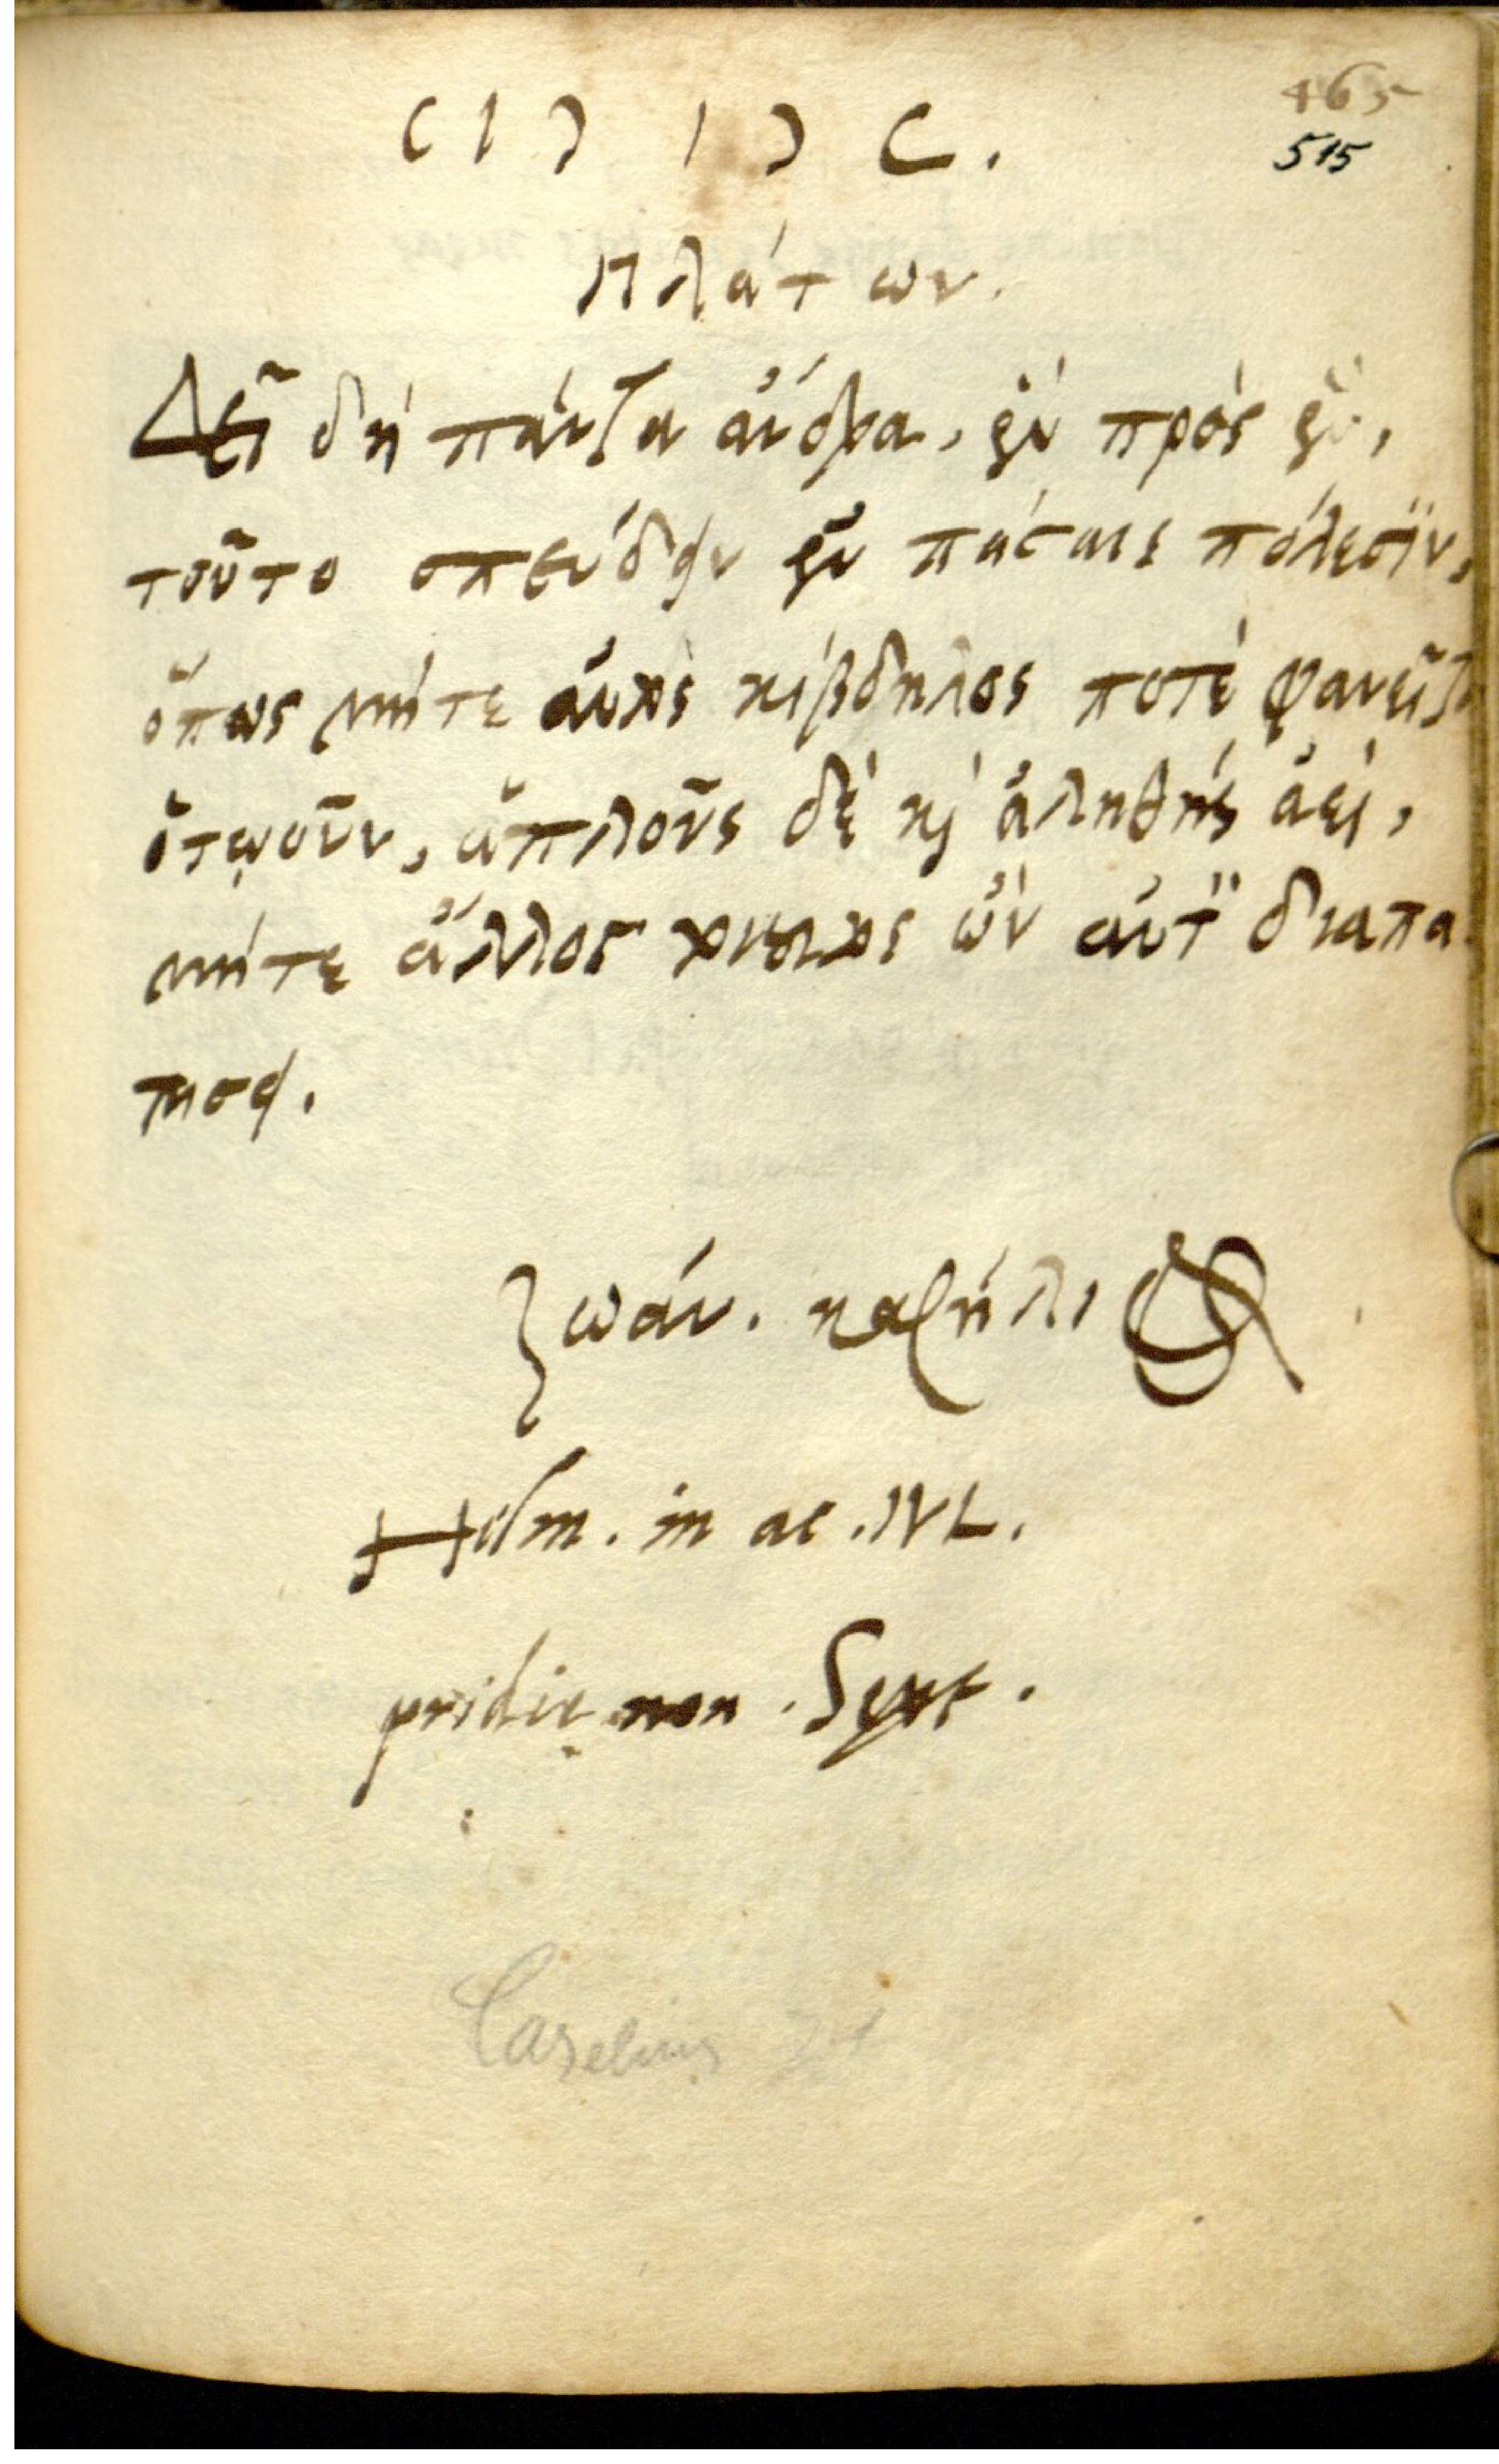 CIƆ IƆ C.
465
515
Πλάτων.
Δεῖ δὴ πάντα ἄνδρα, ἓν πρὸς ἓν,
τοῦτο σπεύδειν ἐν πάσαις πόλεσιν,
ὅπως μήτε αὐτὸς κίβδηλος ποτὲ φανεῖται
ὁτῳοῦν, ἁπλοῦς δὲ καὶ ἀληθὴς ἀεὶ,
μήτε ἄλλος τοιοῦτος ὢν αὐτὸν διαπα
τήσει.
Ἰωάν. κασήλιος
Helm. in ac. IVL.
pridie non. Sept.
Caselius